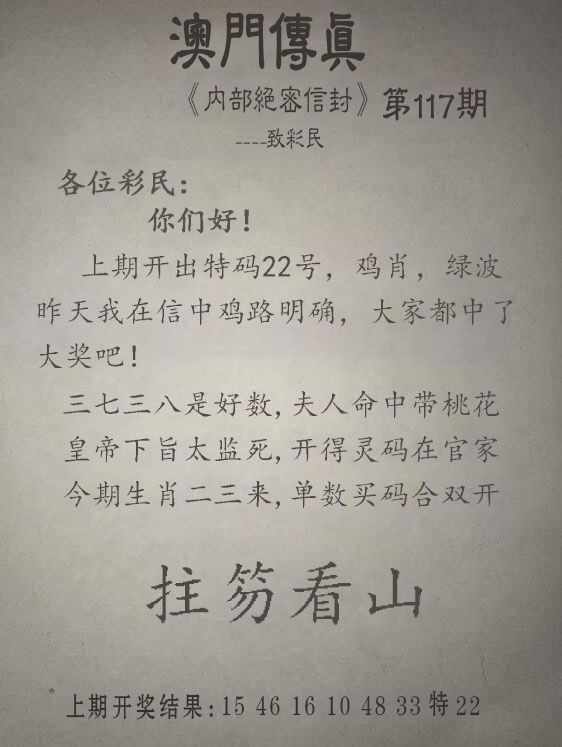 澳門傳眞
《内部絕密信封》第117期
----致彩民
各位彩民：
你们好！
上期开出特码22号，鸡肖，绿波
昨天我在信中鸡路明确，大家都中了
大奖吧！
三七三八是好数,夫人命中带桃花
皇帝下旨太监死,开得灵码在官家
今期生肖二三来,单数买码合双开
拄笏看山
上期开奖结果:15 46 16 10 48 33 特 22